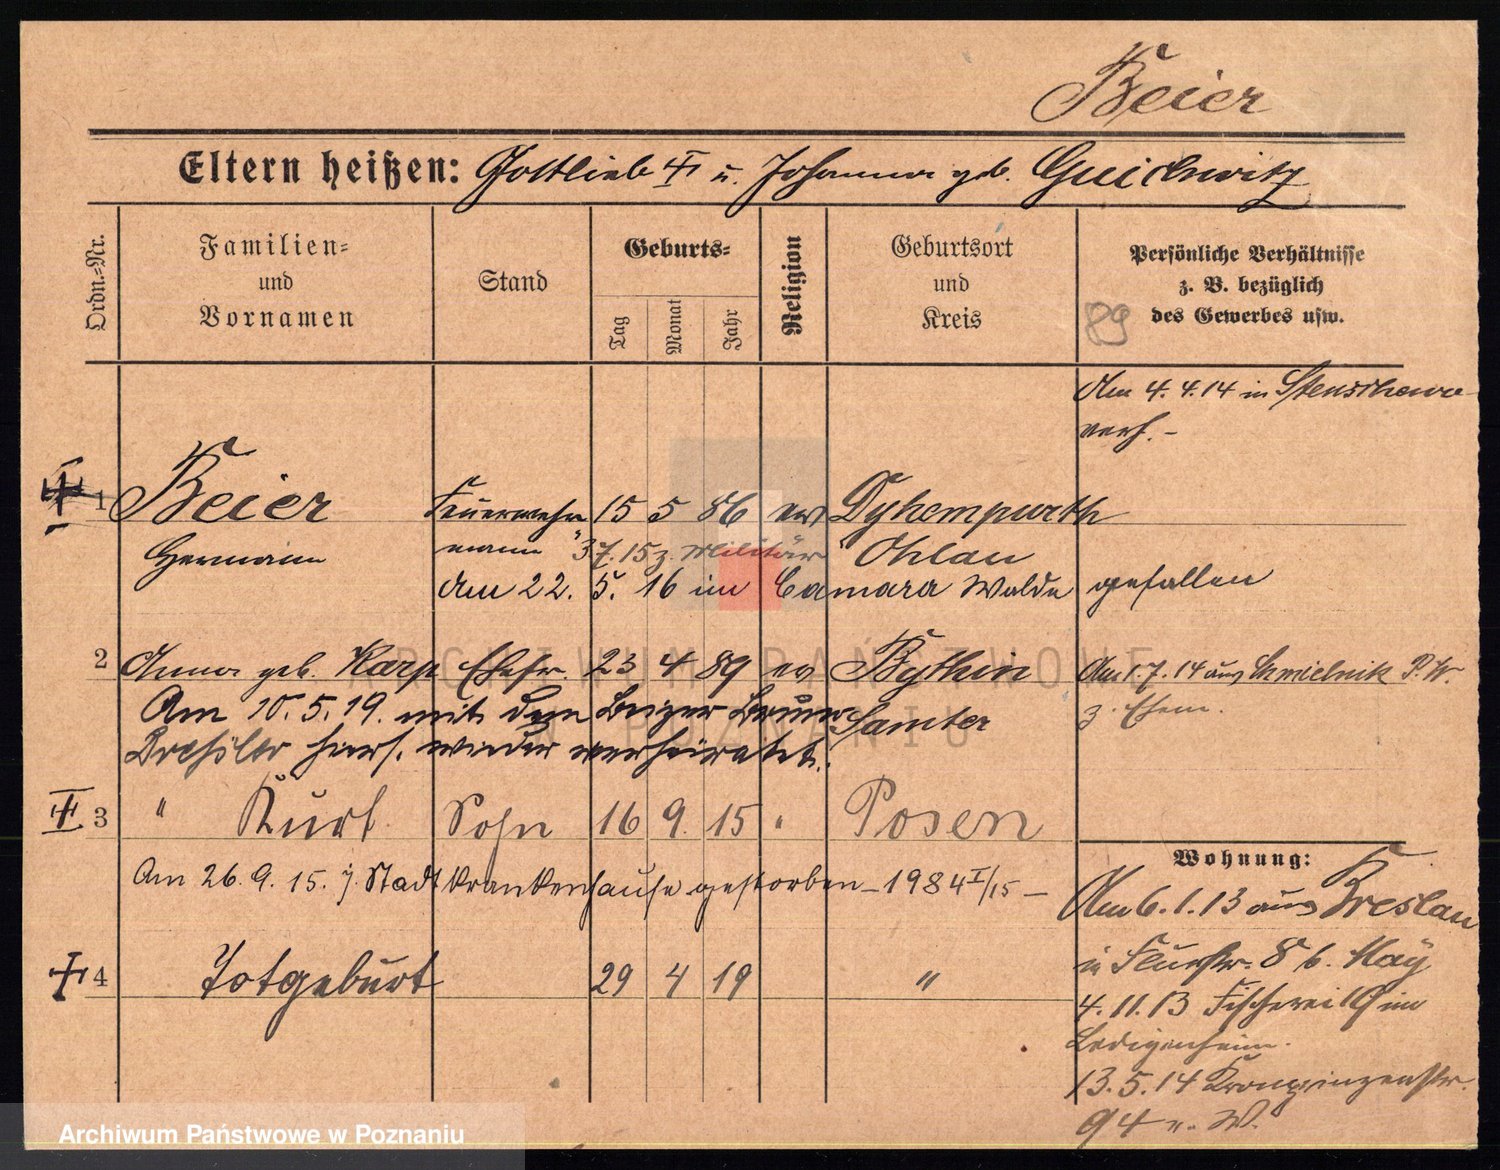 Beier
Eltern heißen: Gottlieb u. Johanna geb. Guickwitz
Ordn.=Nr.
Familien=
und
Vornamen
Stand
Geburts=
Tag
Monat
Jahr
Religion
Geburtsort
und
Kreis
Persönliche Verhältnisse
z. B. bezüglich
des Gewerbes usw.
89
Am 4. 4. 14 in Stenschewo
verh. –
1 Beier Feuerwehr 15 5 86 ev Dyhernfurth
Hermann mann 3 7. 15 z. Militär Ohlau
Am 22. 5. 16 im Camara Walde gefallen
2 Anna geb. Karp Ehefr. 23 4 89 ev Bythin Am 1. 7. 14 aus Chmielnik P. W.
Samter z. Ehem.
Am 10. 5. 19. mit dem Heizer Bruno
Dreßler hiers. wieder verheiratet.
3 " Kurt Sohn 16 9. 15 " Posen
Am 26. 9. 15. i. Stadtkrankenhause gestorben – 1984 I/15 –
4 Totgeburt 29 4 19 "
Wohnung:
Am 6. 1. 13 aus Breslau
in 8 b. May
4. 11. 13 Fischerei im
Ledigenheim.
13. 5. 14 Kronprinzenstr.
94 u. W.
ARCHIWUM PAŃSTWOWE
W POZNANIU
Archiwum Państwowe w Poznaniu